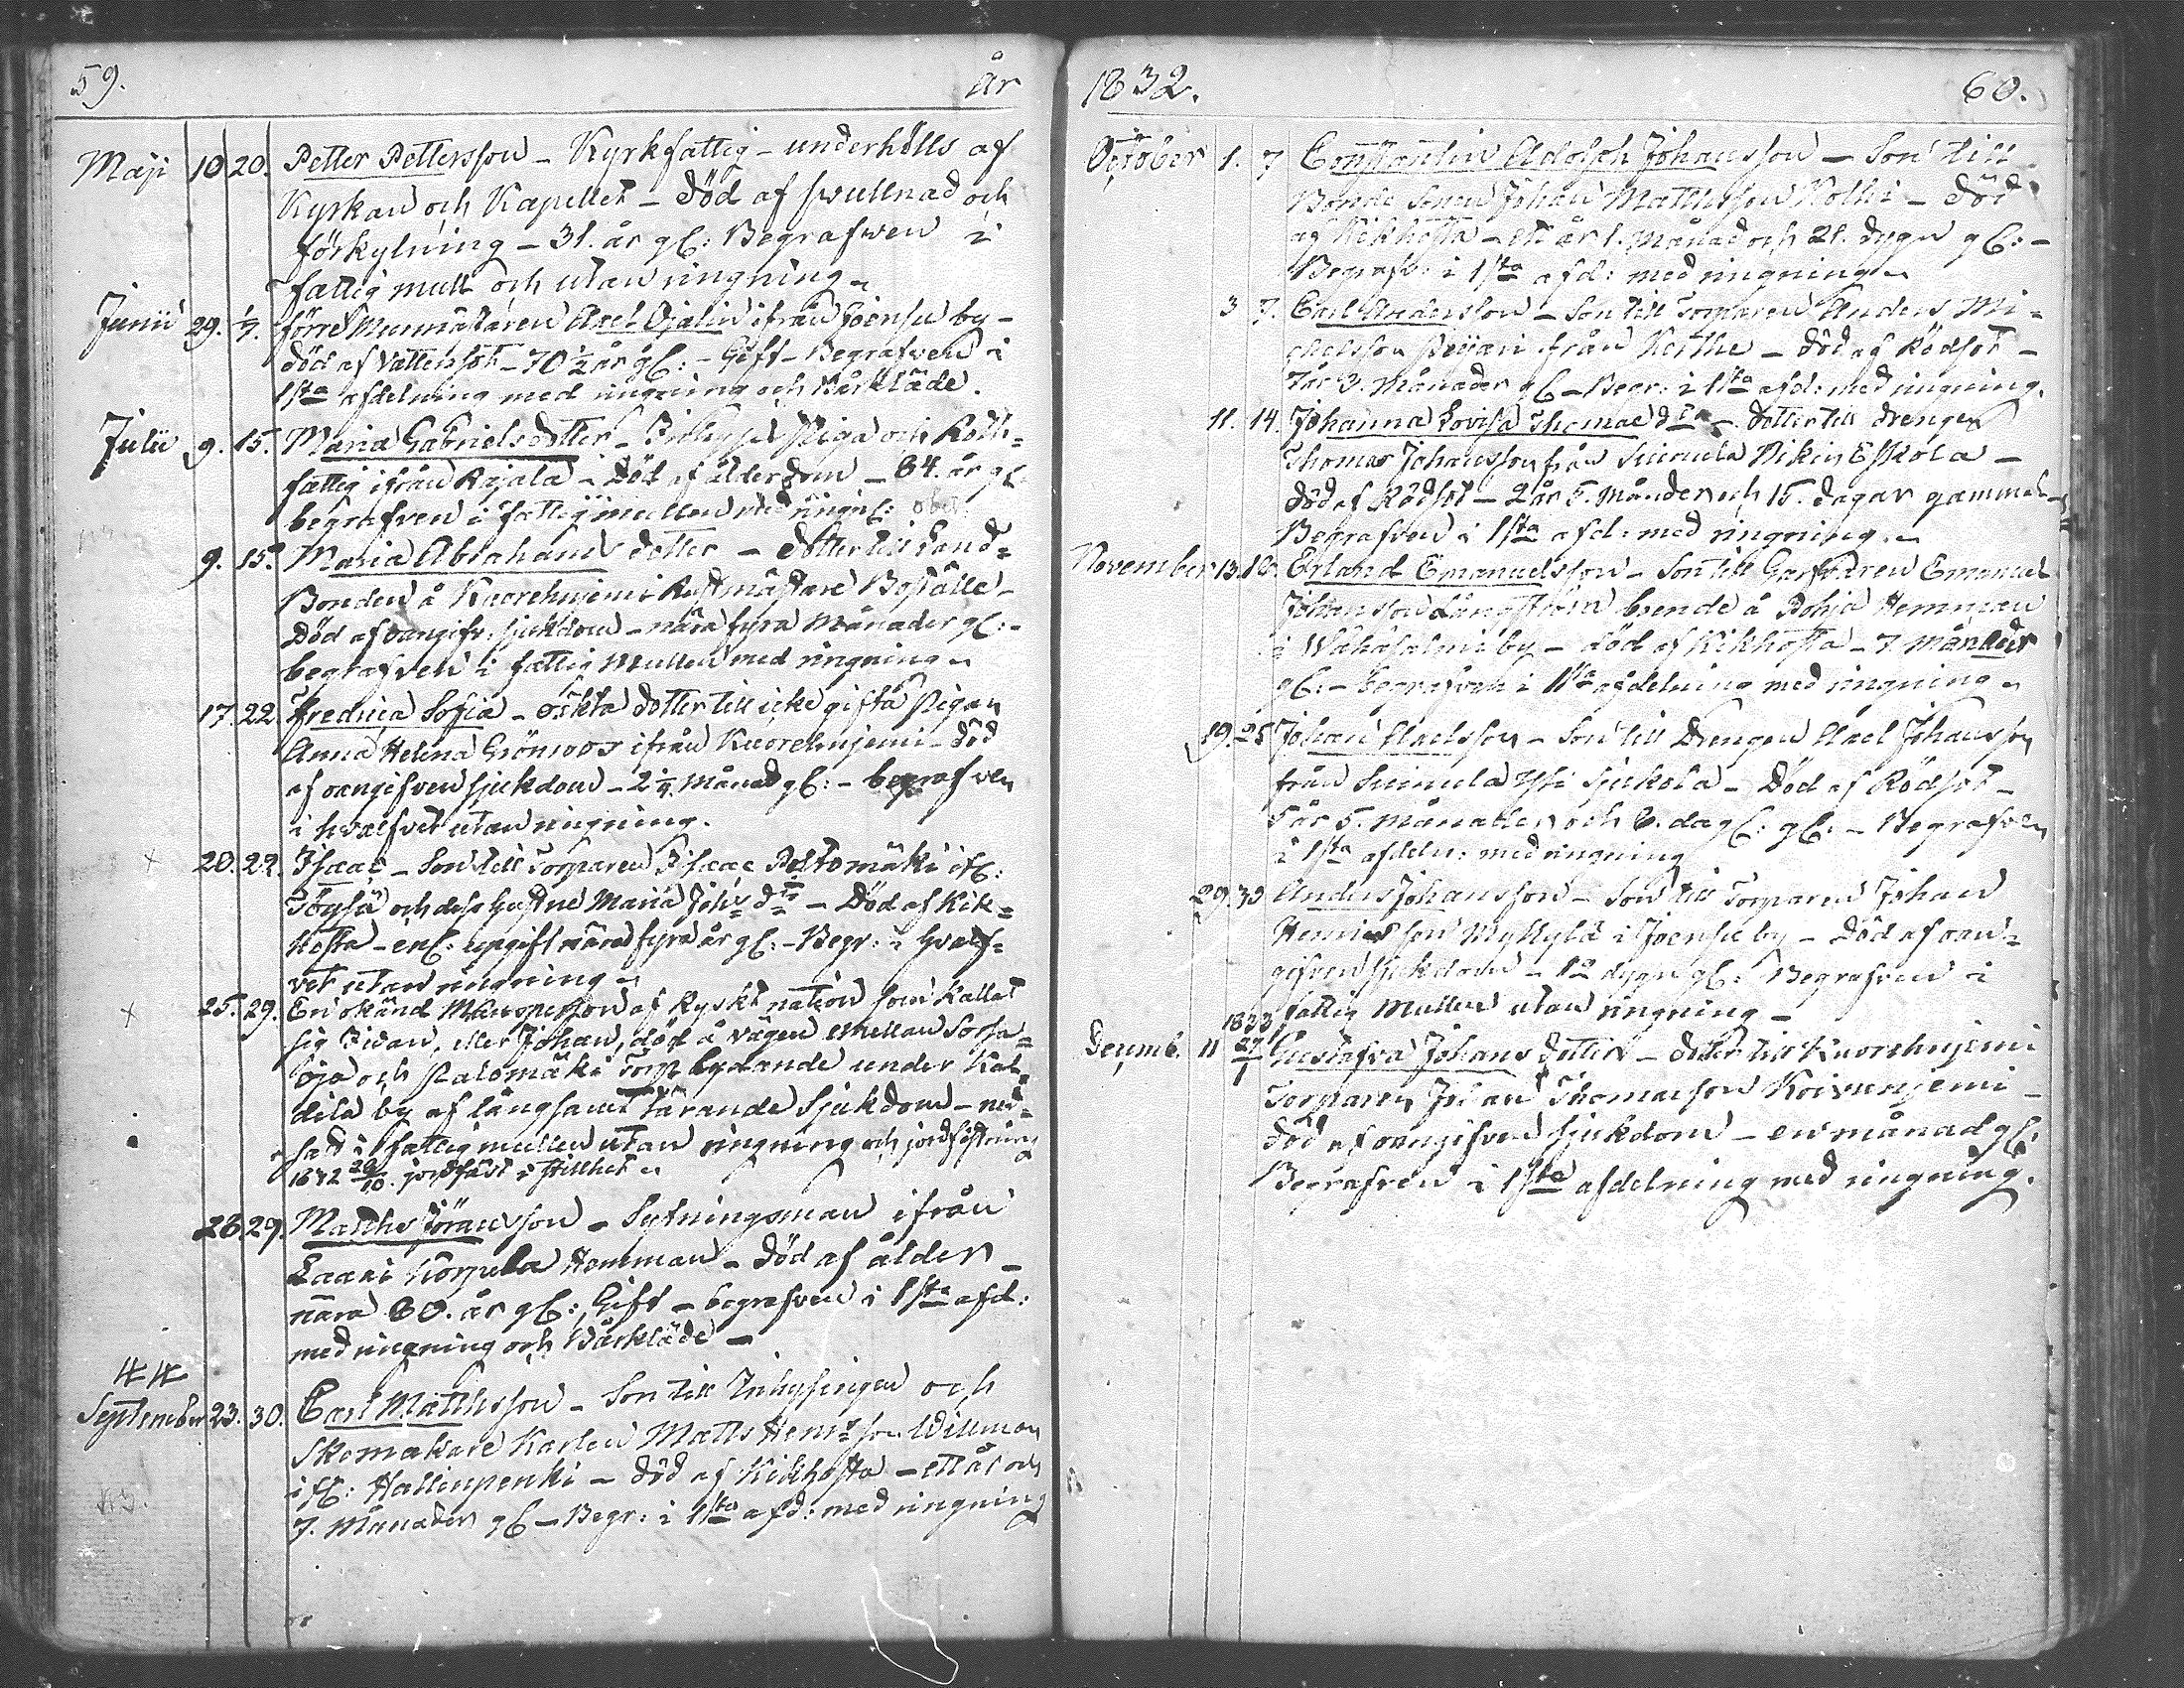 59. år
Maji 10 20. Petter Pettersson - Kyrkfattig - underhölls af
Kyrkan och Kapellet - Död af svullnad och
förkylning - 31. år gl: Begrafven i
fattig mull och utan ringning -
Junii 29. 1/7. förre Murmästaren Axel Ojalin ifrån Joensu by -
död af Vattensot - 70 1/2 år gl: - Gift - Begrafven i
1sta afdelning med ringning och Bårkläde.
Julii 9. 15. Maria Gabrielsdotter - Inhyses Piga och Roth=
fattig ifrån Rajala - Död af ålderdom - 84. år gl.
begrafven i fattigmullen med ringn:
9. 15. Maria Abrahams dotter - dotter till Land=
Bonden å Kuorehnjemi Rustmästare Boställe -
Död af oangifv: sjukdom - nära fyra Månader gl: -
begrafven i fattig Mullen med ringning -
17. 22. Fredrica Sofia - oäkta dotter till icke gifta Pigan
Anna Helena Grönroos ifrån Kuorehnjemi - Död
af oangifven sjukdom - 2 1/4 Månad gl: - begrafven
i hvalfvet utan ringning.
20. 22. Isaac - Son till Torparen Isaac Peltomäki ifl:
Töysä och dess hustru Maria Johs dr - Död af Kik=
hosta - enl: upgift nära fyra år gl: - Begr: i hvalf=
vet utan ringning -
25. 29. En okänd Mansperson af Ryskt nation som kallat
sig Iwan, eller Johan, död å vägen emellan Sorsa=
oja och Palomäki Torp lydande under Kal=
dila by af långsamt tärande Sjukdom - ned=
satt i fattigmullen utan ringning och jordfästning
1832 28/10. jordfäst i stillhet -
28. 29. Matths Göransson - Sytningsman ifrån
Laari Korpula Hemman - Död af ålder -
nära 80. år gl: Gift - begrafven i 1sta afd:
med ringning och Bårkläde -
44
September 23. 30. Carl Matthsson - Son till Inhysingen och
Skomakare Karlen Matts Henrsson Willman
ifl: Hallinpenki - död af Kikhosta - ett år och
7. Månader gl - Begr: i 1sta afd: med ringning
1832. 60.
October 1. 7 Constantin Adolph Johansson - Son till
Bonde Sonen Johan Matthsson Kolhi - Död
af Kikhosta - ett år 1. Månad och 21. dygn gl: -
Begrafv: i 1sta afd: med ringning -
3 7. Carl Andersson - Son till Torparen Anders Mi=
chelsson från Kerthe - Död af Rödsot -
7 år 3. Månader gl - Begr: i 1sta afd: med ringning.
11. 14. Johanna Lovisa Thomae dr - dotter till drengen
Thomas Johansson från Suinula Pikin Eskola -
Död af Rödsot - 2 år 5. Månader och 15. dagar gammal -
Begrafven i 1sta afd: med ringning. -
November 13. 18. Erland Emanuelsson - Son till Garfvaren Emanuel
Johansson Långström boende å Pohja Hemman
i Wähäsalmi by - död af Kikhosta - 7 Månader
gl: - begrafven i 1sta afdelning med ringning -
19. 25 Johan Axelsson - Son till Drengen Axel Johansson
från Suinula Yli Sjukola - Död af Rödsot -
5 år 5. månader och 6. dag gl: - Begrafven
i 1sta afdeln: med ringning
29. 30 Anders Johansson - Son till Torparen Johan
Henricsson Myllylä i Joensu by - Död af oan=
gifven sjukdom - 12 dygn gl: Begrafven i
fattig Mullen utan ringning -
1833
Decemb. 11 27/1 Gustafva Johans dotter - dotter till Kuorehnjemi
Torparen Johan Thomasson Koivunjemi -
Död af oangifven sjukdom - en månad gl:
Begrafven i 1sta afdelning med ringning.